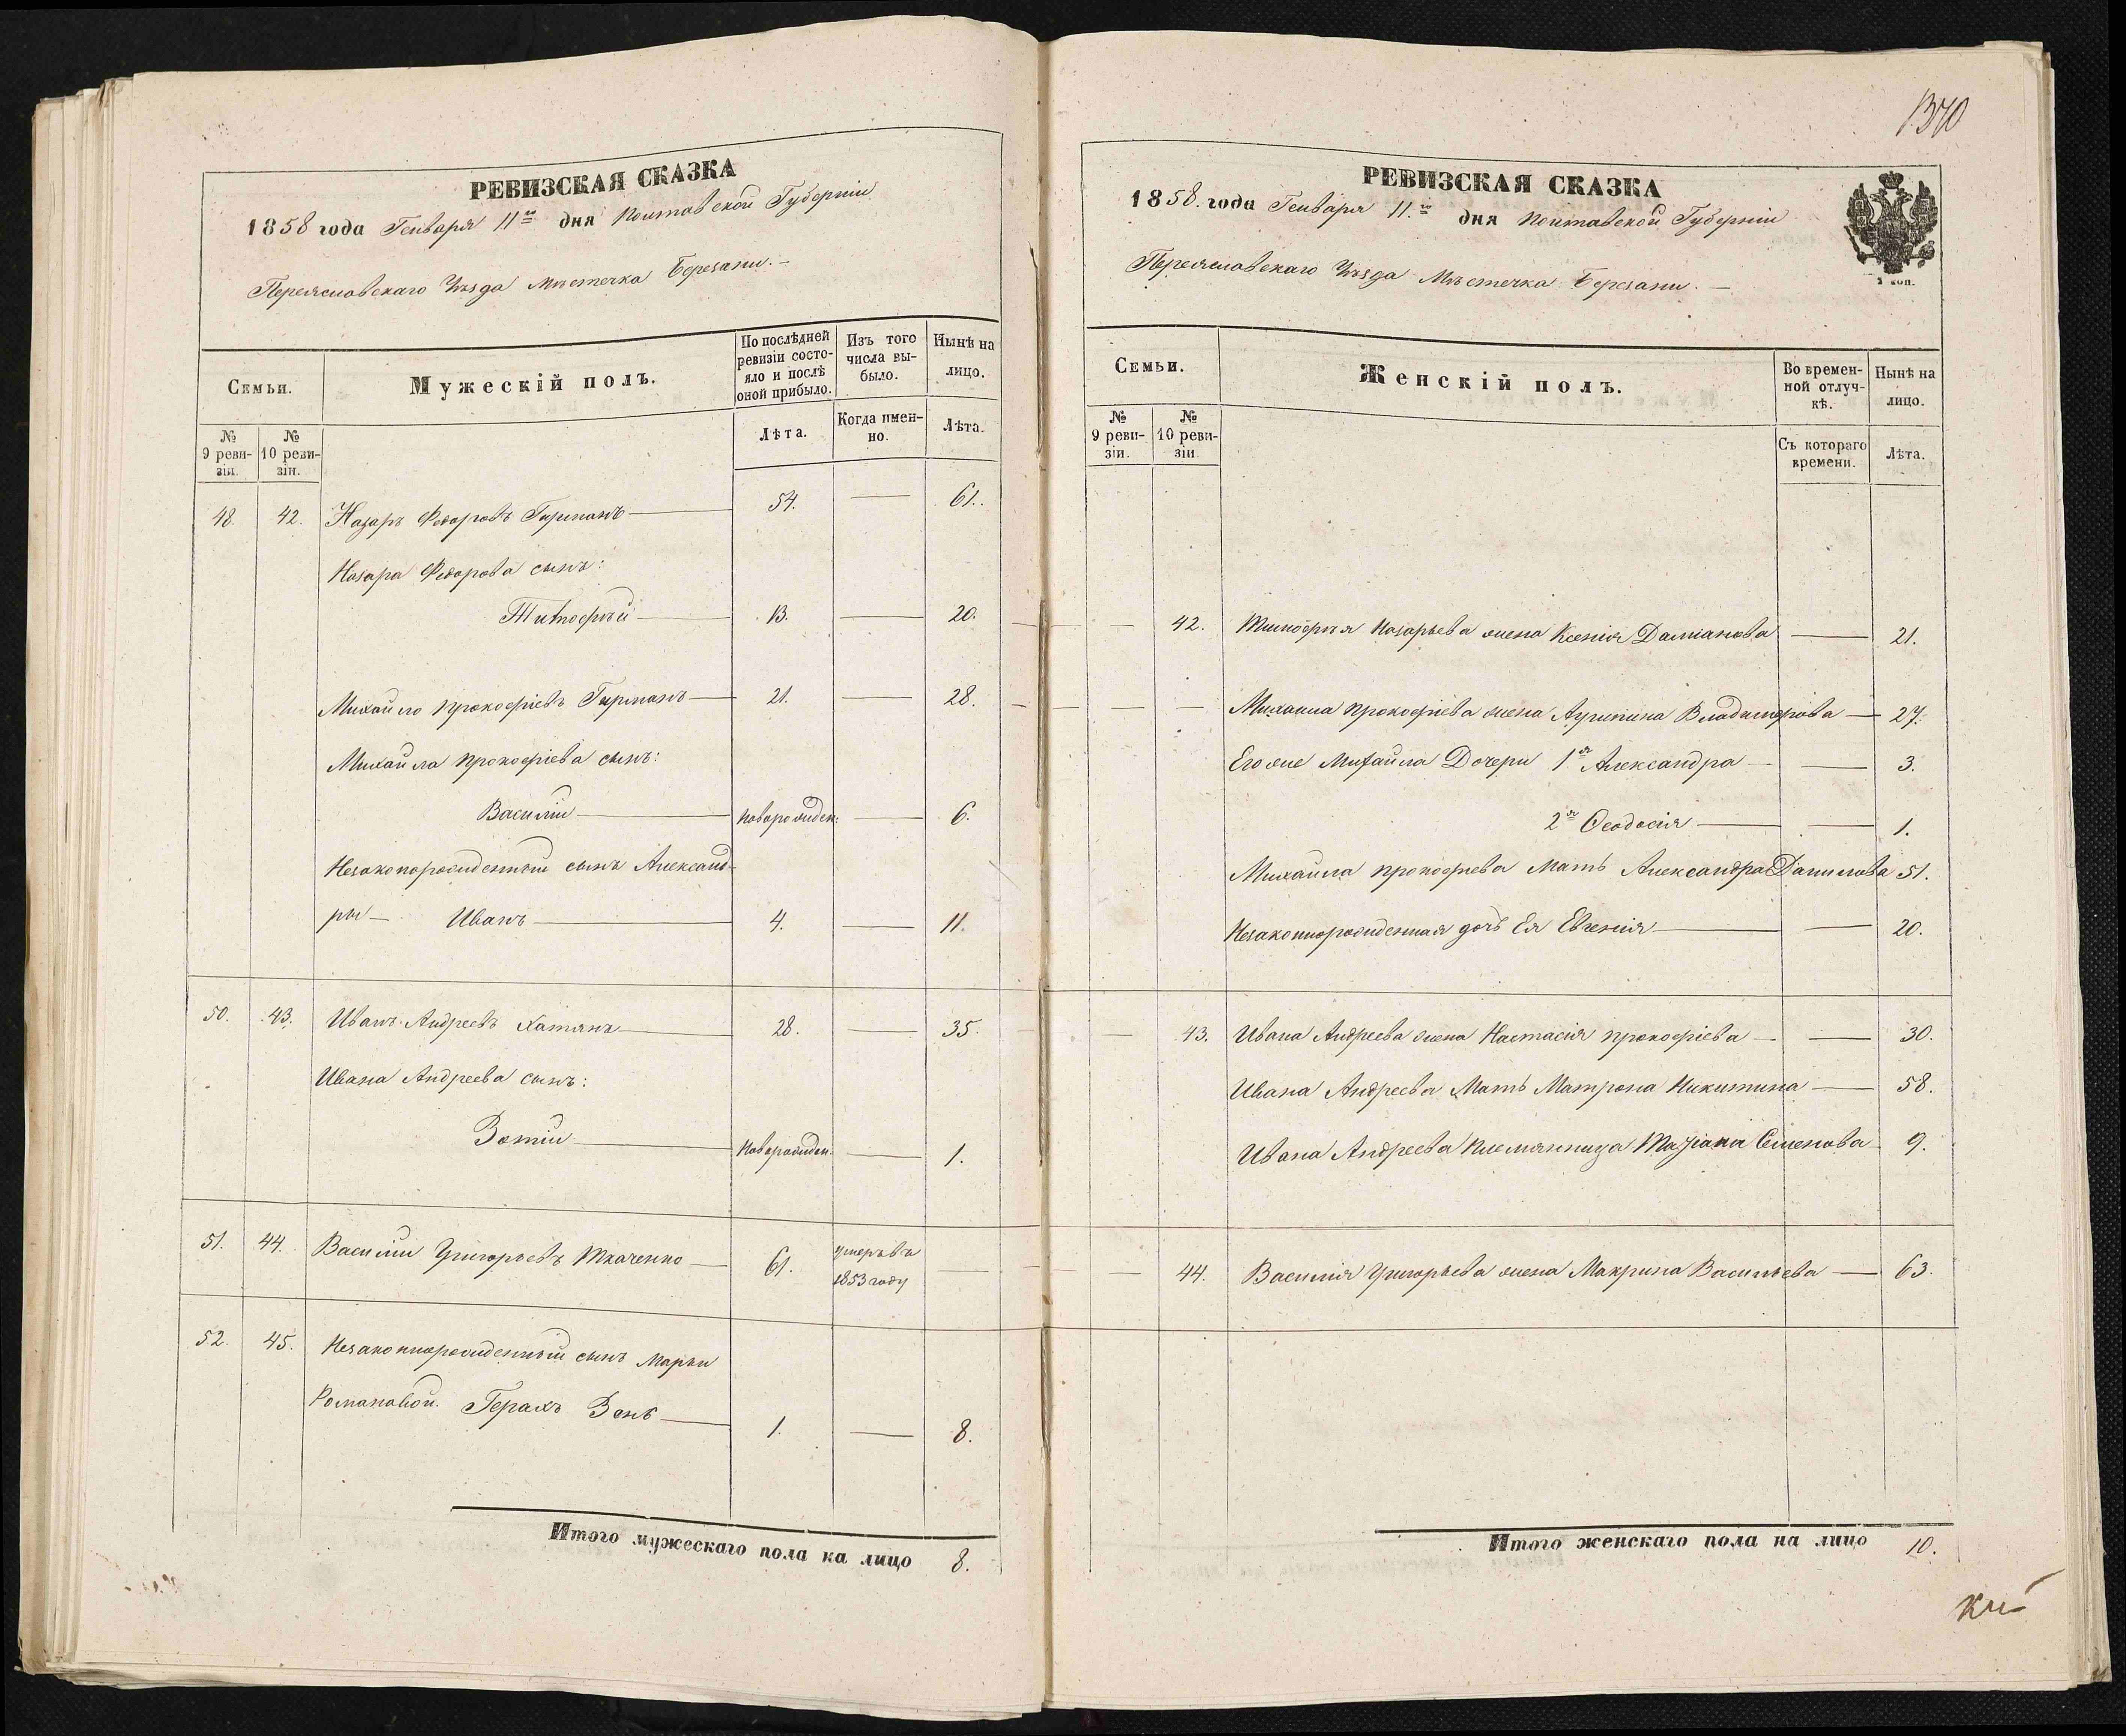 РЕВИЗСКАЯ СКАЗКА
1858 года Генваря 11го дня Полтавской Губерніи
Переяславскаго Уѣзда Мѣстечка Березани.
Семьи.
Мужескій полъ.
По послѣдней ревизіи состояло и послѣ оной прибыло.
Изъ того числа выбыло.
Нынѣ на лицо.
№ 9 ревизіи.
№ 10 ревизіи.
Лѣта.
Когда именно.
Лѣта.
48. 42. Назаръ Федоровъ Гирманъ 54. 61.
Назара Федорова сынъ:
Тимофѣй 13. 20.
Михайло Прокофіевъ Гирманъ 21. 28.
Михайла Прокофіева сынъ:
Василій новорожден: 6.
Незаконорожденный сынъ Александ-
ры Иванъ 4. 11.
50. 43. Иванъ Андреевъ 28. 35.
Ивана Андреева сынъ:
Зотій новорожден. 1.
51. 44. Василій Григорьевъ Ткаченко 61. умеръ въ 1853 году
52. 45. Незаконнорожденный сынъ Марьи
Романовой. 1. 8.
Итого мужескаго пола на лицо 8.
1370
РЕВИЗСКАЯ СКАЗКА
1858. года Генваря 11.го дня Полтавской Губерніи
Переяславскаго Уѣзда Мѣстечка Березани.
Семьи.
Женскій полъ.
Во временной отлучкѣ.
Нынѣ на лицо.
№ 9 ревизіи.
№ 10 ревизіи.
Съ котораго времени.
Лѣта.
42. Тимофѣя Назарьева жена Ксенія Даміанова 21.
Михаила Прокофіева жена Агрипина Владимерова 27.
Его же Михайла Дочери 1я Александра 3.
2я Ѳеодосія 1.
Михайла Прокофьева Мать Александра Данилова 51.
Незаконнорожденная дочь Ея Евгенія 20.
43. Ивана Андреева жена Настасія Прокофіева 30.
Ивана Андреева Мать Матрона Никитина 58.
Ивана Андреева племянница Семенова 9.
44. Василія Григорьева жена Макрина Васильева 63.
Итого женскаго пола на лицо 10.